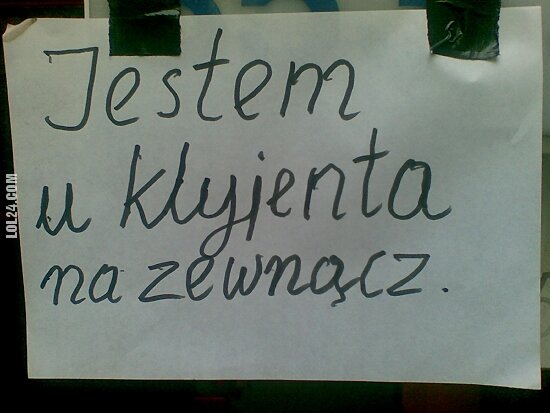 Jestem
u klyjenta
na zewnącz.
LOL24.COM